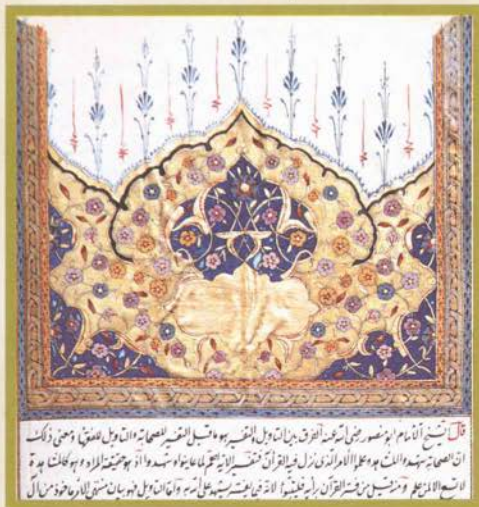 قال الشيخ الامام ابو منصور رضى الله عنه الفرق بين التأويل والتفسير هو ما قيل التفسير للصحابة والتاويل للفقهاء ومعنى ذلك
ان الصحابة شهدوا المشاهد وعلموا الامر الذى نزل فيه القرآن فتفسير الآية اهم لما عاينوا وشهدوا اذ هو حقيقة المراد وهو كالمشاهدة
لا تسمح الا لمن علم ومنه قيل من فسر القرآن برأيه فليتبوأ لانه فيما يفسر يشهد على الله به واما التاويل فهو بيان منتهى الامر مأخوذ من آل